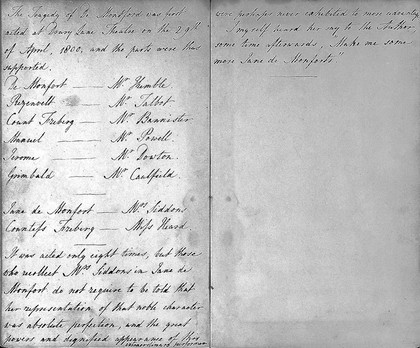 The Tragedy of De Montfort was first
acted at Drury Lane Theatre on the 29th
of April, 1800, and the parts were thus
supported.
De Monfort — Mr Kemble.
Rezenvelt — Mr Talbot
Count Freberg — Mr Bannister
Manuel — Mr Powell.
Jerome — Mr Dowton.
Grimbald — Mr Caulfield.
Jane de Monfort — Mrs Siddons
Countess Freberg — Miss Heard
It was acted only eight times, but those
who recollect Mrs Siddons in Jane de
Monfort do not require to be told that
her representation of that noble character
was absolute perfection, and the great
powers and dignified appearance of this
extraordinary
were perhaps never exhibited to more
I myself heard her say to the Author
some time afterwards, "Make me some
more Jane de Monforts"